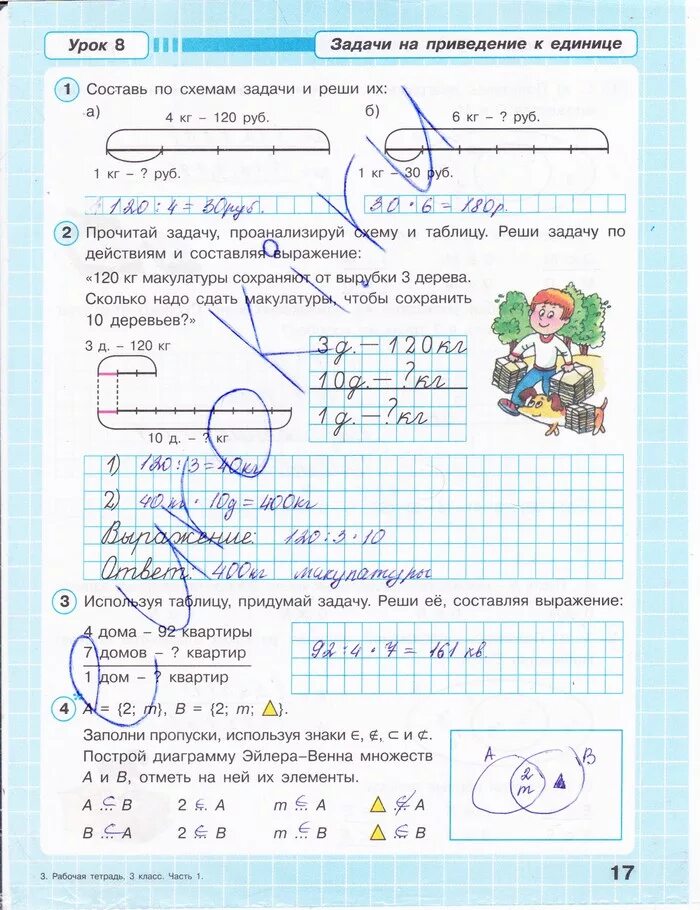 Урок 8
Задачи на приведение к единице
1 Составь по схемам задачи и реши их:
а) 4 кг – 120 руб. б) 6 кг – ? руб.
1 кг – ? руб. 1 кг – 30 руб.
120 : 4 = 30руб. 30 · 6 = 180р.
2 Прочитай задачу, проанализируй схему и таблицу. Реши задачу по
действиям и составляя выражение:
«120 кг макулатуры сохраняют от вырубки 3 дерева.
Сколько надо сдать макулатуры, чтобы сохранить
10 деревьев?»
3 д. – 120 кг
10 д. – ? кг
3д. – 120кг
10д. – ?кг
1д. – ?кг
1) 120 : 3 = 40кг
2) 40кг · 10д = 400кг
Выражение: 120 : 3 · 10
Ответ: 400кг макулатуры
3 Используя таблицу, придумай задачу. Реши её, составляя выражение:
4 дома – 92 квартиры
7 домов – ? квартир
1 дом – ? квартир
92 : 4 · 7 = 161 кв.
4 A = {2; m}, B = {2; m; ▲}.
Заполни пропуски, используя знаки ∈, ∉, ⊂ и ⊄.
Построй диаграмму Эйлера–Венна множеств
A и B, отметь на ней их элементы.
A B
2
m
A ⊂ B 2 ∈ A m ∈ A ▲ ∉ A
B ⊂ A 2 ∈ B m ∈ B ▲ ∈ B
3. Рабочая тетрадь, 3 класс. Часть 1.
17